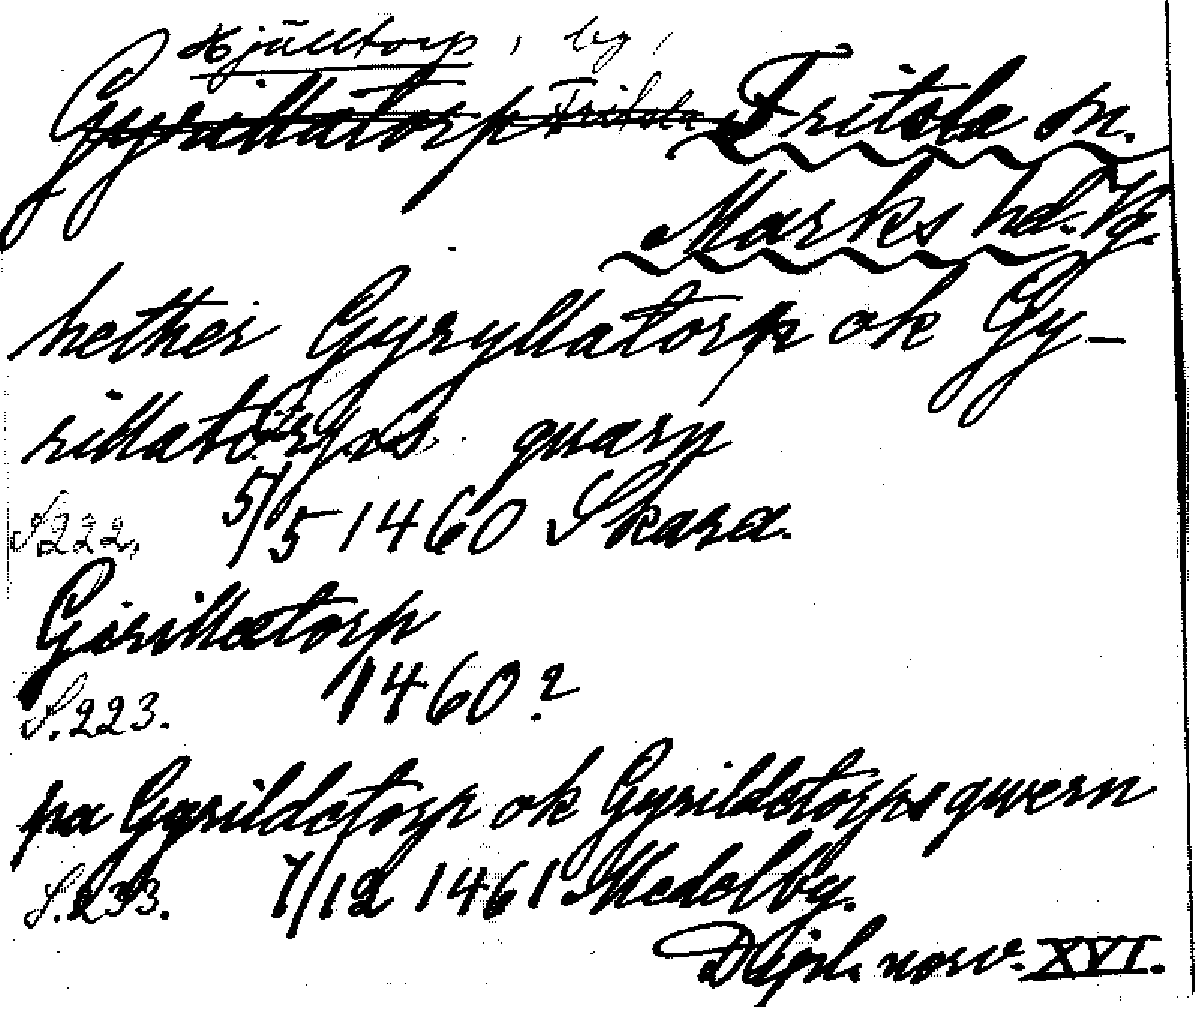 Hjälltorp, by,
Gyrillatorp Fritsla Fritsla sn.
Marks hd. Vg.
hether Gyryllatorp ok Gy-
rillatorps quarn
S. 222, 5/5 1460 Skara.
Girillatorp
S. 223. 1460?
pa Gyrildetorp ok Gyrildetorps qwern
S. 233. 7/12 1461 Medelby.
Dipl. norv. XVI.